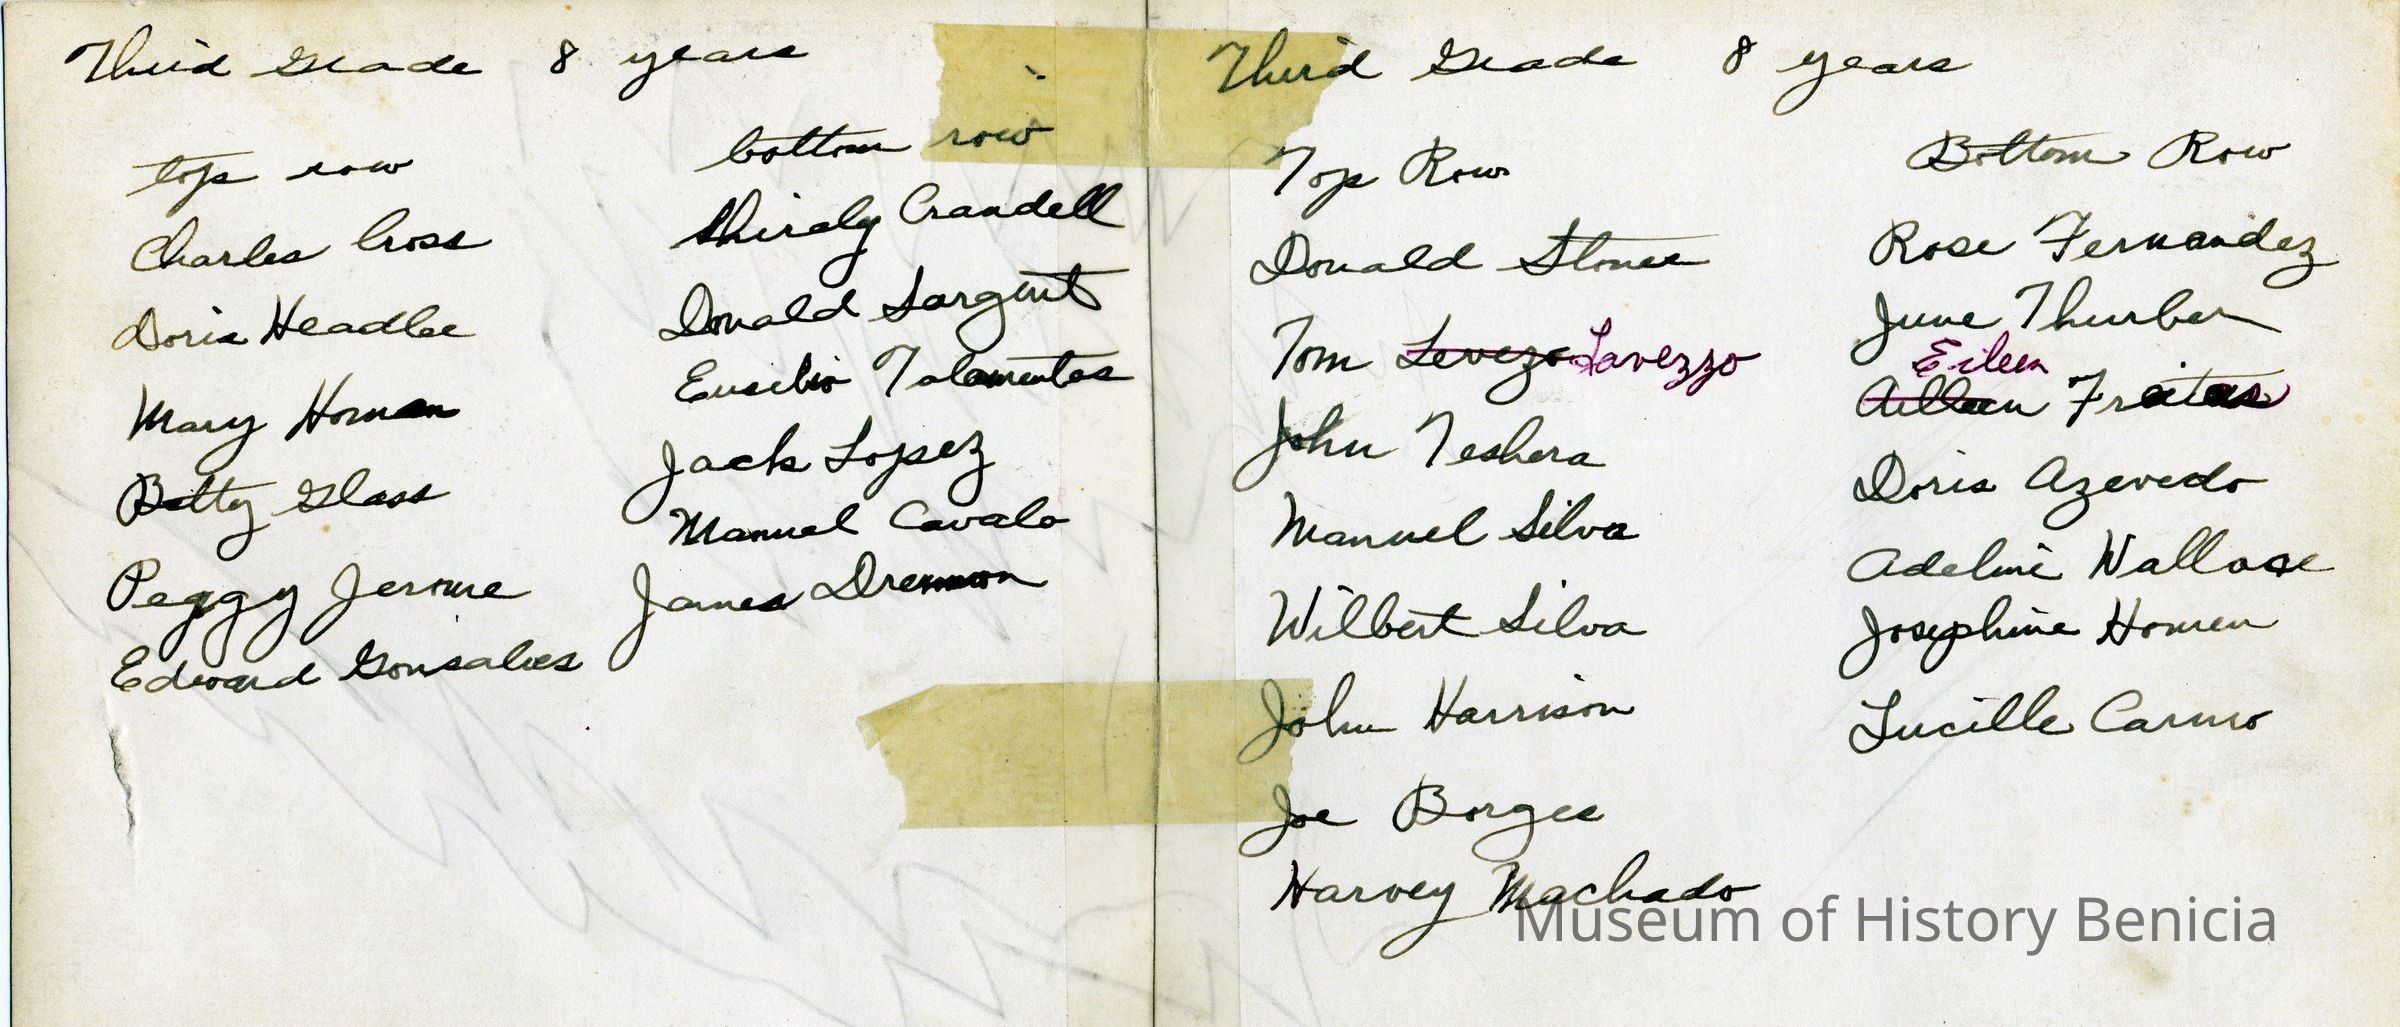 Third Grade 8 years
top row
Charles Cross
Doris Headlee
Mary Homen
Betty Glass
Peggy Jerome
Edward Gonsalves
bottom row
Shirely Crandell
Donald Sargent
Eusibio Talamentas
Jack Lopez
Manuel Cavalo
James Drennon
Third Grade 8 years
Top Row
Donald Stones
Tom Levezo Lavezzo
John Teshera
Manuel Silva
Wilbert Silva
John Harrison
Joe Borges
Harvey Machado
Bottom Row
Rose Fernandez
June Thurber
Eileen
Ailleen Freitas
Doris Azevedo
Adeline Wallace
Josephine Homen
Lucille Caruso
Museum of History Benicia